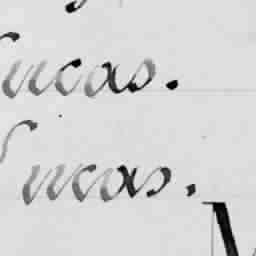 Lucas.
Lucas.